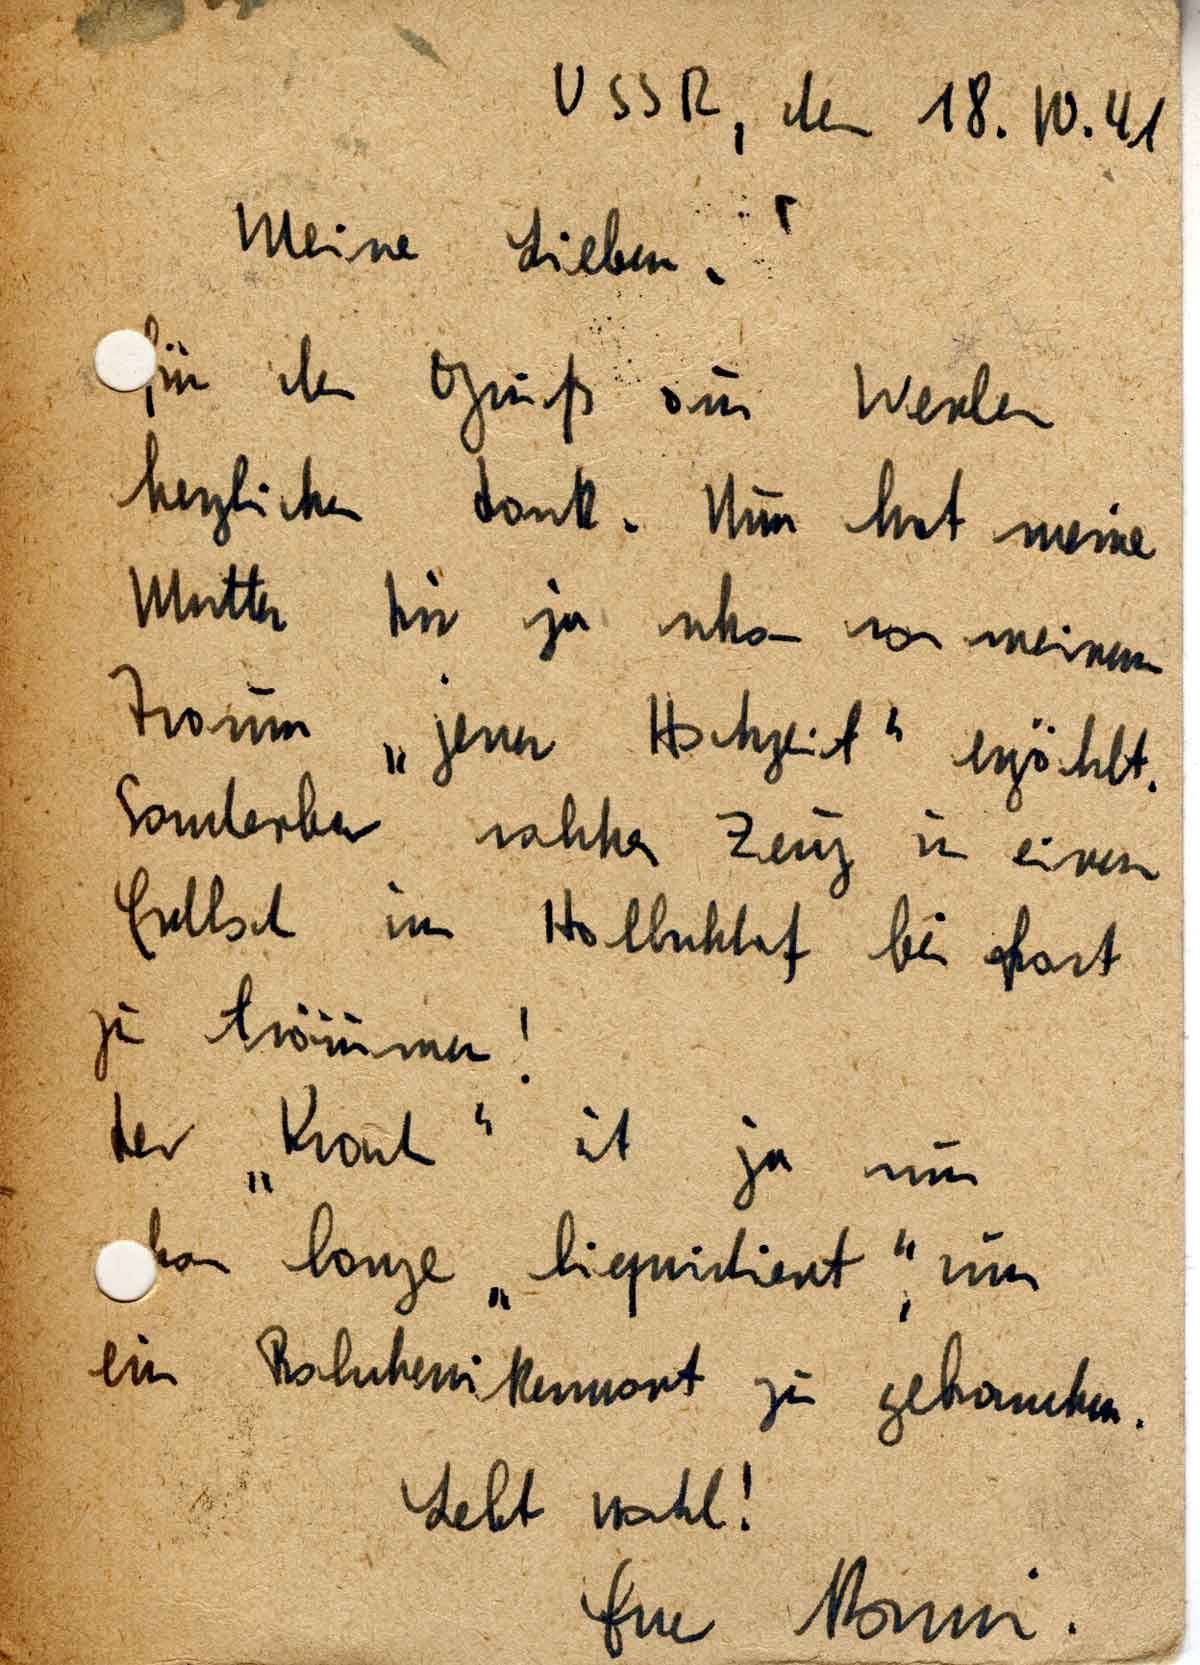 USSR, den 18.10.41
Meine Lieben!
für den Gruß aus Werden
herzlichen Dank. Nun hat meine
Mutter Dir ja schon von meinem
Traum „jener Hochzeit“ erzählt.
Sonderbar solches Zeug in einem
im Halbschlaf bei
zu träumen!
Der ist ja nun
schon lange „liquidiert“, um
ein Bolschewikenwort zu gebrauchen.
Lebt wohl!
Eue